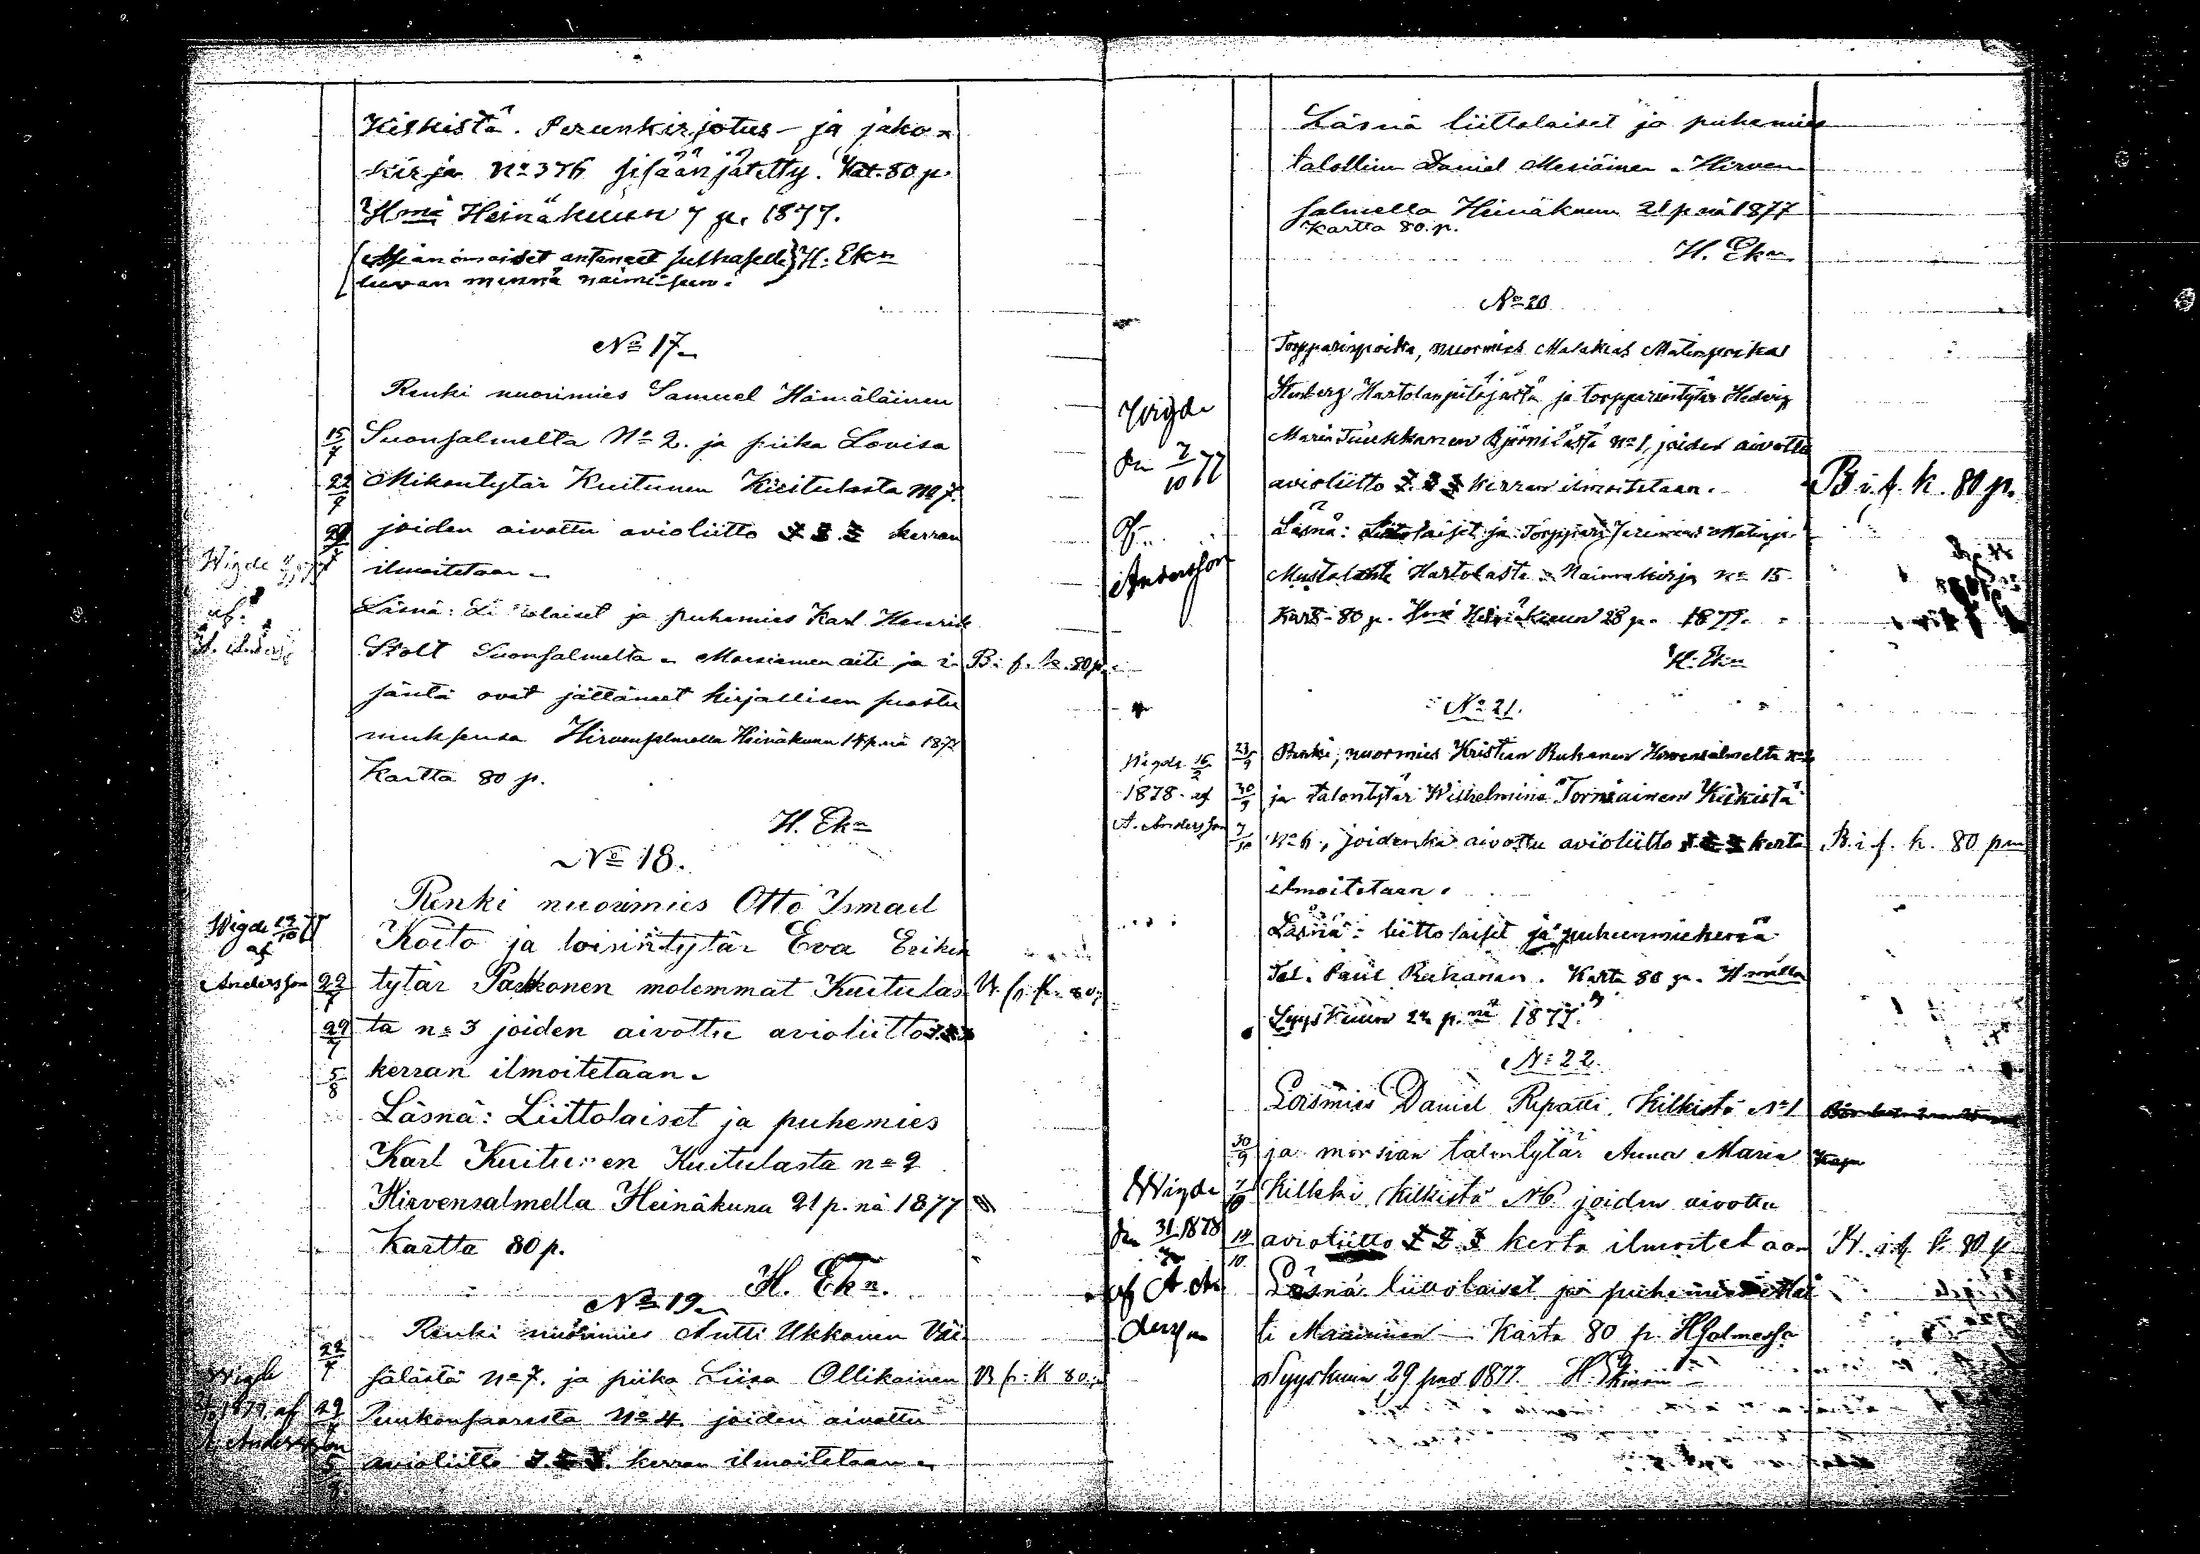 Kiskistä. Perunkirjotus- ja jako-
kirja No 376 sisäänjätetty. Kat. 80 p.
Hmä Heinäkuun 7 p. 1877.
(Asianomaiset antaneet suthaselle} H. Ekn
luvan mennä naimiseen.
No 17.
Renki nuorimies Samuel Hämäläinen
15/7 Suonsalmelta No 2. ja piika Lovisa
22/7 Mikontytär Kuitunen Kuitulasta No 7.
29/7 joiden aivottu avioliitto 1 2 3 kerran
Wigde
ilmoitetaan.
af
Läsnä: Liittolaiset ja puhemies Karl Henrik
Stolt Suonsalmelta. Morsiamen äiti ja i- B. i. f. k. 80 p.
säntä ovat jättäneet kirjallisen suostu
muksensa Hirvensalmella Heinäkuun 14 p:nä 1877
Kartta 80 p.
H. Ekn
No 18.
Renki nuorimies Otto Ismael
Wigde 13/10 77
af
Koito ja loisintytär Eva Erikin
Andersson 22/7 tytär Parkonen molemmat Kuitulas B. f. k. 80 p
29/7 ta no 3 joiden aivottu avioliitto 1.2.3
5/8 kerran ilmoitetaan.
Läsnä: Liittolaiset ja puhemies
Karl Kuitunen Kuitulasta no 2
Hirvensalmella Heinäkuna 21 p. nä 1877
Kartta 80 p.
H. Ekn.
No 19.
Renki nuorimies Antti Ukkonen Väi
22/7
Wigde sälästä No 7. ja piika Liisa Ollikainen B f. K 80 p
1877 af 29/7 Puukonsaaresta No 4 joiden aivottu
A. Andersson 5/8 avioliitto 1. 2. 3. kerran ilmoitetaan.
Läsnä liittolaiset ja puhemies
talollinen Daniel Mesiäinen. Hirven-
salmella Heinäkuun 21 p nä 1877
Kartta 80. p.
H. Ekn.
No 20
Torpparinpoika, nuormies Malakias Matinpoika
Stenberg Hartolanpitäjästä ja torpparintytär Hedvig
Wigde
Maria Tuukkanen Björnilästä no 1, joiden aivottu
den 7/10 77
avioliitto 1. 2. 3 kerran ilmoitetaan. B. i. f. k. 80 p.
af
Läsnä: Liittolaiset ja Torppari Jeremias Matinp.
Andersson
Mustalahti Hartolasta. Naimakirja no 15
Kart. 80 p. Hmä Heinäkuun 28 p. 1877.
H. Ekn
No 21.
Wigde 16/2 23/9 Renki, nuormies Kristian Ruhanen Hirvensalmelta no
1878. af 30/9 ja talontytär Wilhelmina Torniainen Kiskistä
A. Andersson 7/10 no 6, joidenka aivottu avioliitto 1 2 3 kerta B. i. f. k. 80 pm
ilmoitetaan.
Läsnä: liittolaiset ja puhenmiehenä
Tal. Paul Ruhanen. Karta 80 p. Hmällä
Syyskuun 22 p. nä 1877.
No 22.
Loismies Daniel Ripatti Kilkistä No 1
30/9 ja morsian talontytär Anna Maria
Wigde 7/10 Kilkki Kilkistä No 6 joiden aivottu
den 31/ 1878 14/10 avioliitto 1 2 3 kerta ilmoitetaan B. i. f. k. 80 p
af A. An
Läsnä liittolaiset ja puhemies Mat
dersson
ti Karta 80 p. HSalmessa
Syyskuun 29 pnä 1877 H. Ekman